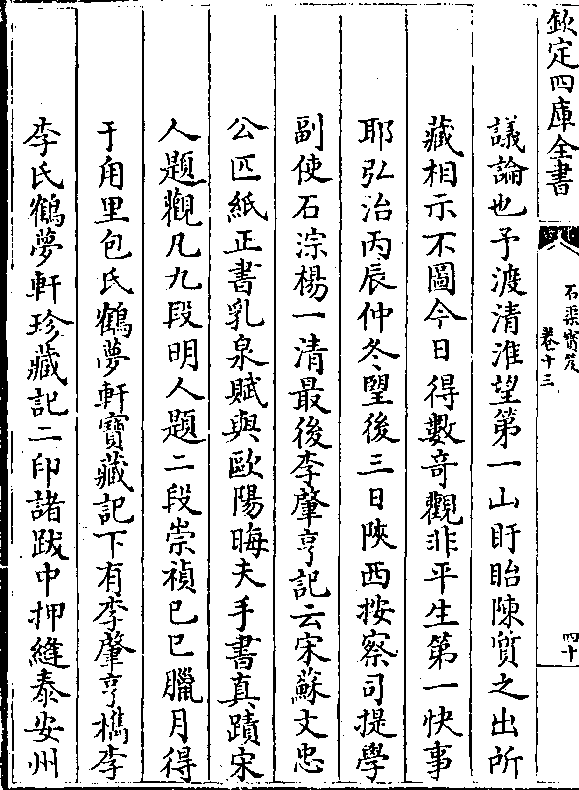 欽定四庫全書
石渠寶笈
卷十三
四十
議論也予渡清淮望第一山盱眙陳質之出所
藏相示不圖今日得數竒觀非平生第一快事
耶弘治丙辰仲冬朢後三日陜西按察司提學
副使石淙楊一清最後李肇亨記云宋蘇文忠
公匹紙正書乳泉賦與歐陽晦夫手書真蹟宋
人題觀凡九段明人題二段崇禎己巳臘月得
于甪里包氏鶴夢軒寶藏記下有李肇亨檇李
李氏鶴夢軒珍藏記二印諸跋中押縫泰安州